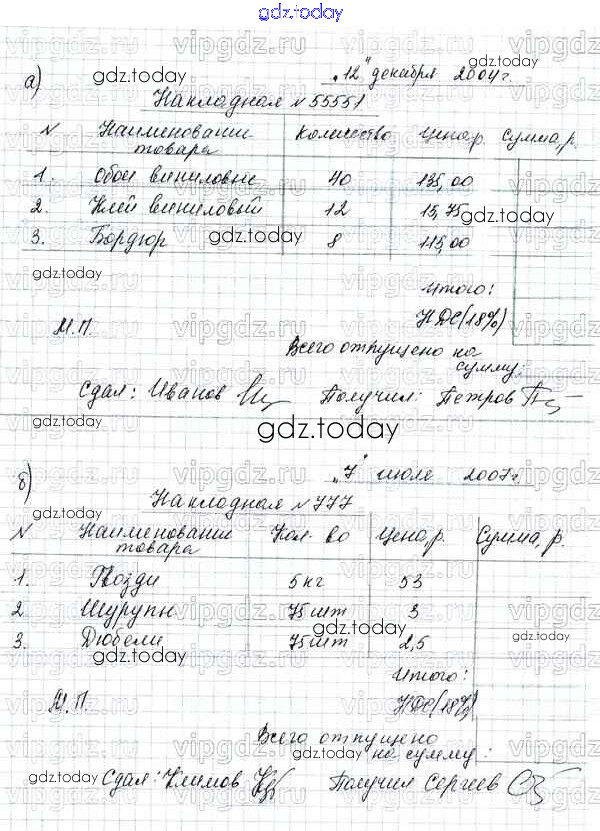 gdz.today
а) "12" декабря 2004г.
Накладная № 55551
N Наименование товара Количество Цена,р. Сумма,р.
1. Обои виниловые 40 135,00
2. Клей виниловый 12 15,75
3. Бордюр 8 115,00
Итого:
НДС (18%)
М.П.
Всего отпущено на
сумму:
Сдал: Иванов Получил: Петров
gdz.today
б) "7" июля 2007г.
Накладная № 777
N Наименование товара Кол-во Цена,р. Сумма, р.
1. Гвозди 5 кг 53
2. Шурупы 75 шт 3
3. Дюбели 75 шт 2,5
Итого:
НДС (18%)
М.П.
Всего отпущено
на сумму:
Сдал: Климов Получил Сергеев